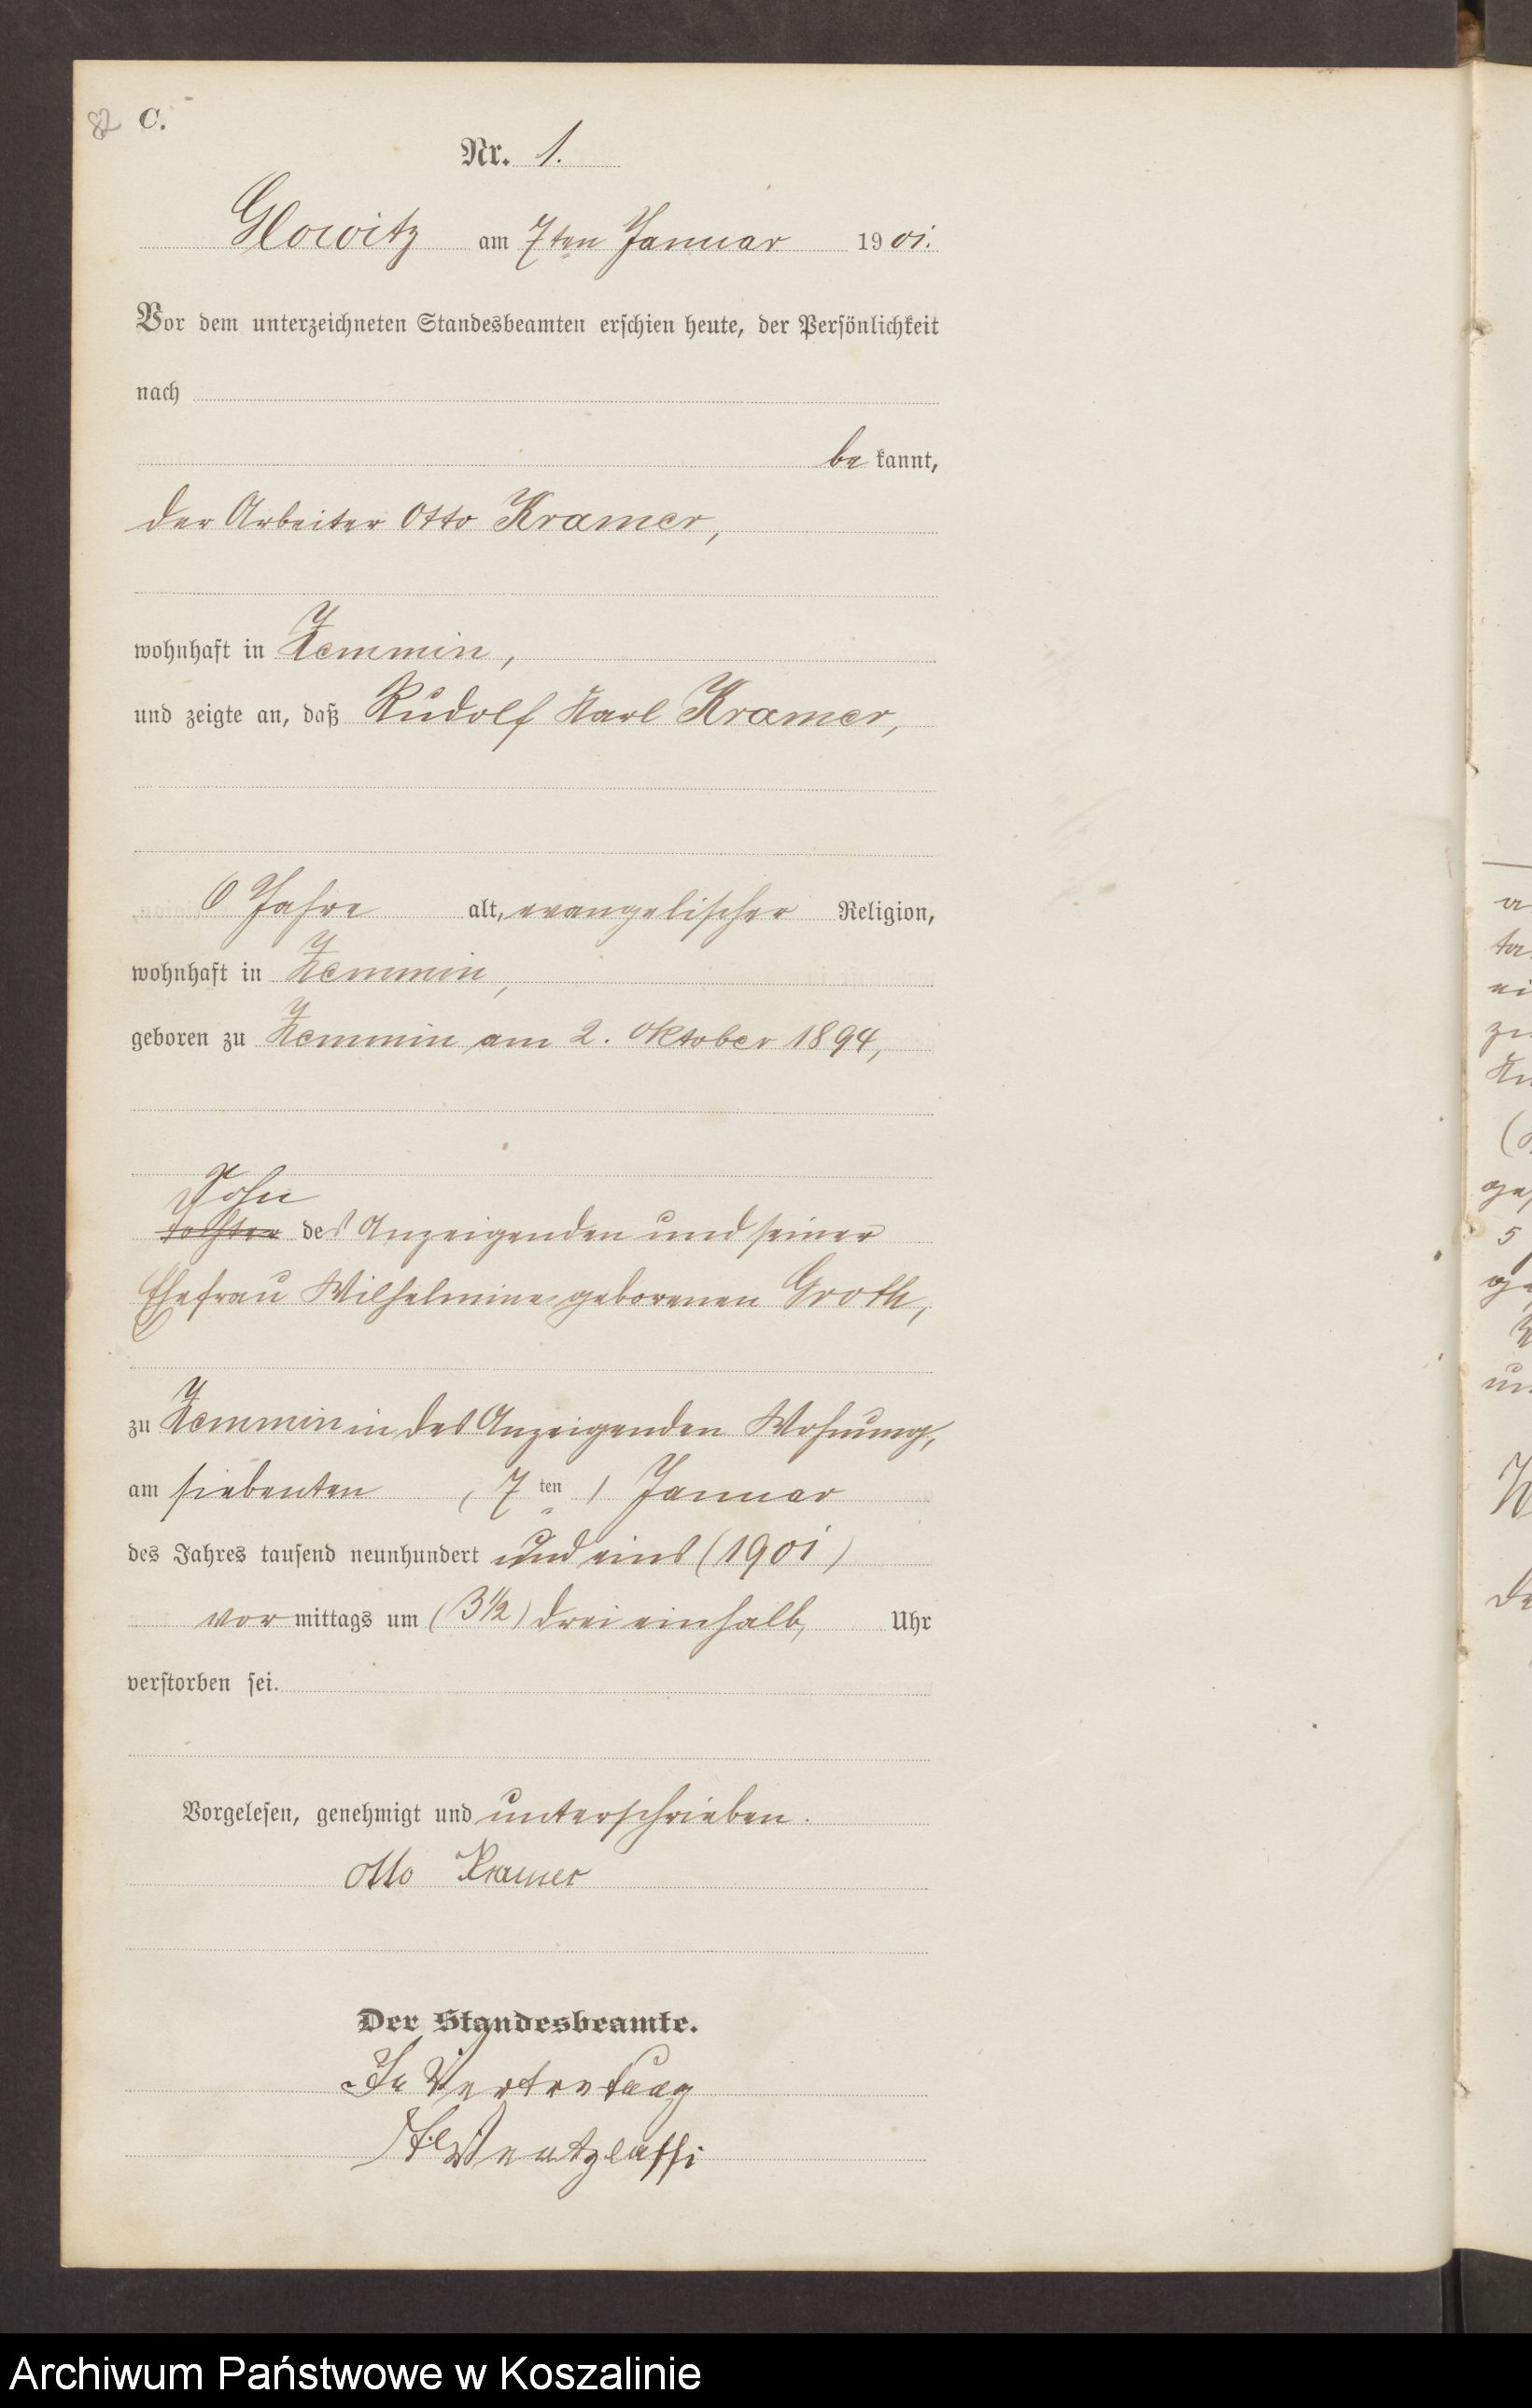 82 C.
Nr. 1.
Glowitz am 7ten Januar 1901.
Vor dem unterzeichneten Standesbeamten erschien heute, der Persönlichkeit
nach
be kannt,
der Arbeiter Otto Kramer,
wohnhaft in Zemmin,
und zeigte an, daß Rudolf Karl Kramer,
6 Jahre alt, evangelischer Religion,
wohnhaft in Zemmin,
geboren zu Zemmin am 2. Oktober 1894,
Sohn
Tochter des Anzeigenden und seiner
Ehefrau Wilhelmine geborenen Groth,
zu Zemmin in des Anzeigenden Wohnung,
am siebenten (7 ten) Januar
des Jahres tausend neunhundert und eins (1901)
vor mittags um (3½) drei einhalb, Uhr
verstorben sei.
Vorgelesen, genehmigt und unterschrieben.
Otto Kramer
Der Standesbeamte.
In Vertretung
Archiwum Państwowe w Koszalinie